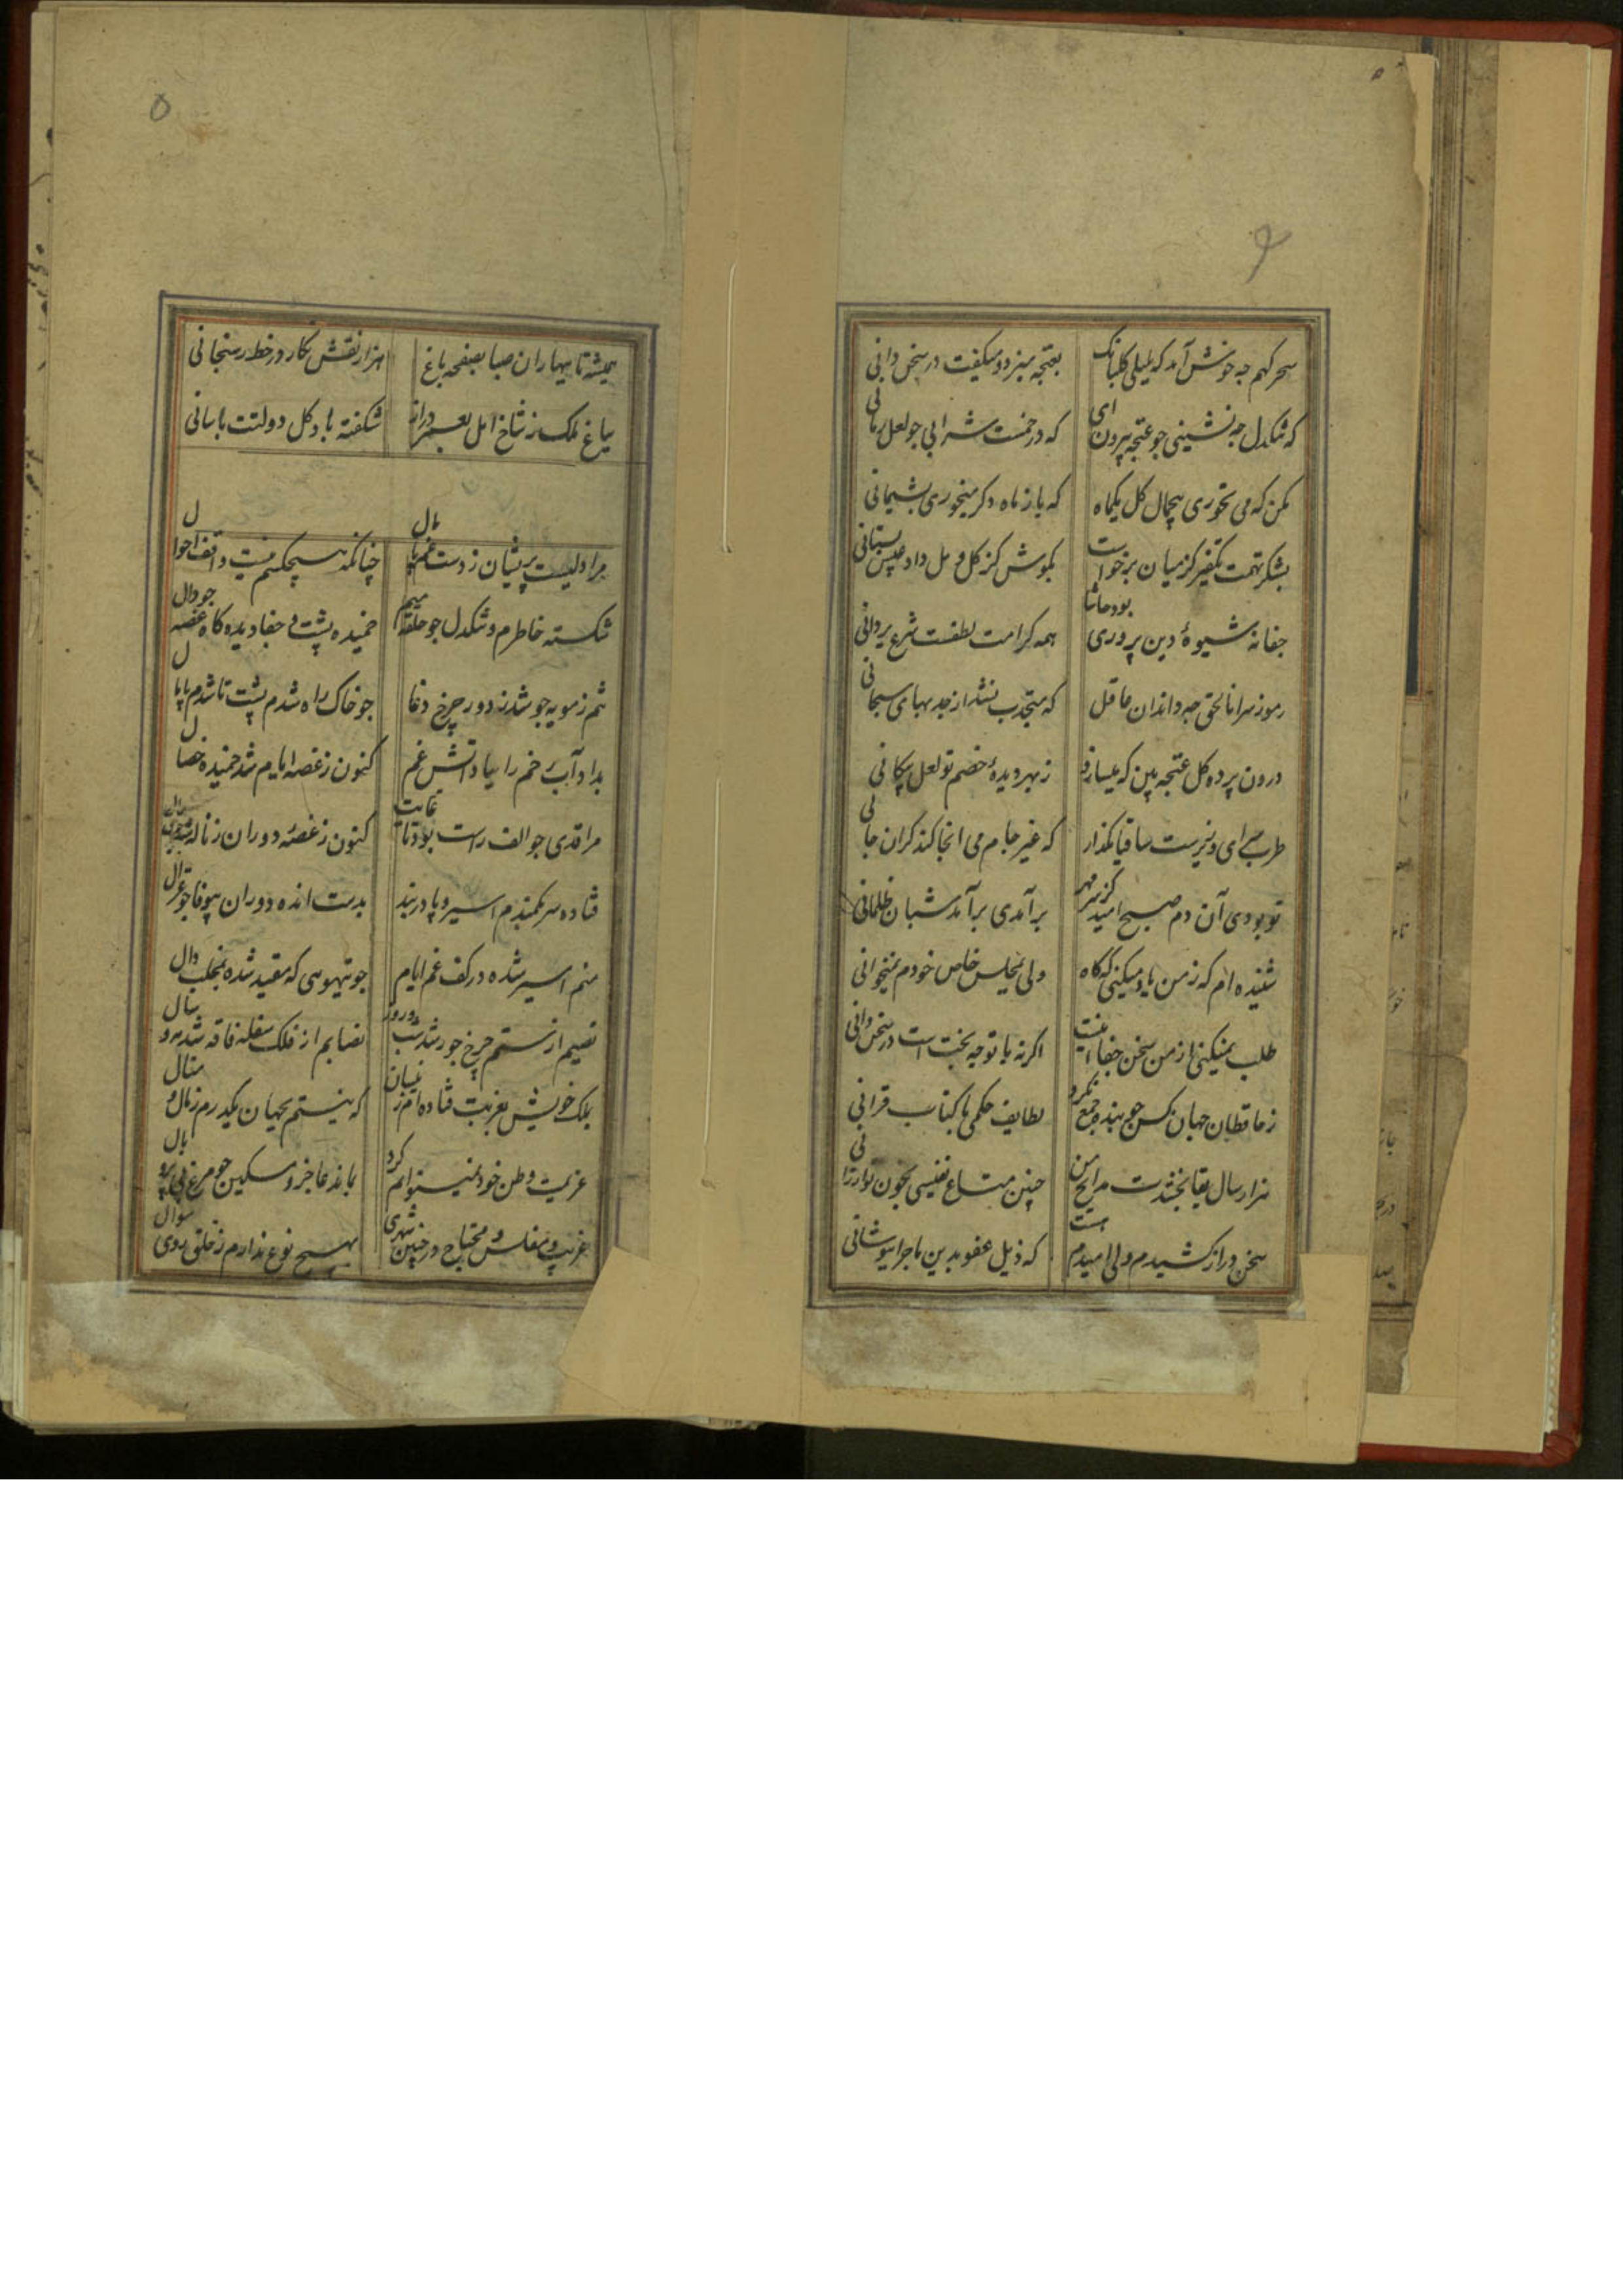 سحرکهم چه خوش آمد که بلبلی کلبانک بغنچه میزد و میکفت در سخن دانی
که تنکدل چه نشینی چو غنچه بیرون ای که در خمست شرابی چو لعل رمانی
مکن که می نخوری بر جمال کل یکماه که باز ماه دکر میخوری پشیمانی
بشکر تهمت تکفیر کز میان برخواست بکوش کز کل و مل داد عیش بستانی
جفا نه شیوهٔ دین پروری بود حاشا همه کرامت لطفست شرع یزدانی
رموز سر انا الحق چه داند آن غافل که منجذب نشد از جذبهای سبحانی
درون پرده کل غنچه بین که میسازد ز بهر دیدهٔ خصم تو لعل پیکانی
طرب سرای وزیرست ساقیا مکذار که غیر جام می انجا کند کران جانی
تو بودی آن دم صبح امید کز سر مهر برآمدی برآمد شبان ظلمانی
شنیده ام که ز من یاد میکنی که کاه ولی بمجلس خاص خودم نمیخوانی
طلب نمیکنی از من سخن جفا اینست اکرنه با تو چه بحث است در سخن دانی
ز حافظان جهان کس چو بنده جمع نکرد لطایف حکمی با کتاب قرانی
هزار سال بقا بخشدت مدایح من چنین متاع نفیسی بچون تو ارزانی
سخن دراز کشیدم ولی امیدم است که ذیل عفو بدین ماجرا بپوشانی
همیشه تا ببهاران صبا بصفحه باغ هزار نقش نکارد ز خط ریحانی
بباغ ملک ز شاخ امل بعمر دراز شکفته باد کل دولتت باسانی
مرا دلیست پریشان ز دست غم پامال چنانکه هیچکسم نیست واقف احوال
شکسته خاطرم و تنکدل چو حلقه میم خمیده پشت و جفا دیده کاه غصه چو دال
تنم ز مویه چو شد ز دور چرخ دغا چو خاک راه شدم پشت تا شدم پامال
بداد آب رخم را بباد آتش غم کنون ز غصه ایام شد خمیده خصال
مرا قدی چو الف راست بود تا غایت کنون ز غصهٔ دوران ز ناله
فتاده سر بکمندم اسیر و پا در بند بدست انده دوران بیوفا چو غزال
منم اسیر شده در کف غم ایام چو تیهوی که مقید شده بمخلب دال
نصیبم از ستم چرخ جور شد شب و روز نصابم از فلک سفله فاقه شد مه و سال
بملک خویش بغربت فتاده ام ز نسان که نیستم بجهان یکدرم ز مال و منال
عزیمت وطن خود نمیتوانم کرد بمانده عاجز و مسکین چو مرغ بی پر و بال
غریب و مفلس و محتاج در چنین شهری بهیچ نوع ندارم ز خلق روی سوال